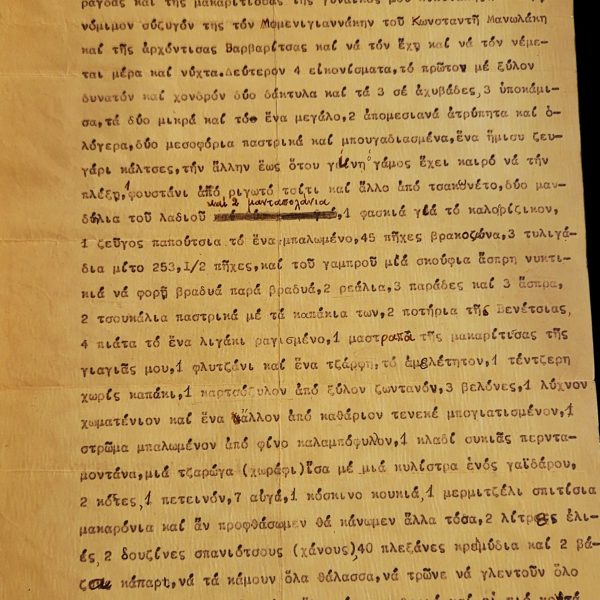 ραγδας καί τῆς μακαρίτισσας τῆς γυναίκας μου
νόμιμον σύζυγόν της τόν Μομενιγιαννάκην τοῦ Κωνσταντῆ Μανωλάκη
καί τῆς ἀρχόντισας Βαρβαρίτσας καί νά τόν ἔχῃ καί νά τόν νέμε-
ται μέρα καί νύχτα.Δεύτερον 4 εἰκονίσματα,τό πρῶτον μέ ξύλον
δυνατόν καί χονδρόν δύο δάκτυλα καί τά 3 σέ ἀχυβάδες,3 ὑποκάμι-
σα,τά δύο μικρά καί τό ἕνα μεγάλο,2 ἀπομεσιανά ἀτρύπητα καί ὁ-
λόγερα,δύο μεσοφόρια παστρικά καί μπουγαδιασμένα,ἕνα ἥμισυ ζευ-
γάρι κάλτσες,τήν ἄλλην ἕως ὅτου γίνῃ ὁ γάμος ἔχει καιρό νά τήν
πλέξῃ,1 φουστάνι ἀπό ριγωτό τσίτι καί ἄλλο ἀπό τσακονέτο,δύο μαν-
καί 2 μανταπολάνια
δάλια τοῦ λαδιοῦ ,1 φασκιά γιά τό καλορίζικον,
1 ζεῦγος παπούτσια τό ἕνα μπαλωμένο,45 πῆχες βρακοζώνα,3 τυλιγά-
δια μίτο 253,1/2 πῆχες,καί τοῦ γαμπροῦ μιά σκούφια ἄσπρη νυκτι-
κιά νά φορῇ βραδυά παρά βραδυά,2 ρεάλια,3 παράδες καί 3 ἄσπρα,
2 τσουκάλια παστρικά μέ τά καπάκια των,2 ποτήρια τῆς Βενέτσιας,
4 πιάτα τό ἕνα λιγάκι ραγισμένο,1 μαστραπᾶ τῆς μακαρίτισας τῆς
γιαγιᾶς μου,1 φλυτζάνι καί ἕνα τζάρφη,τό ἀμελέτητον,1 τέντζερη
χωρίς καπάκι,1 καρτσόξυλον ἀπό ξύλον ζωντανόν,3 βελόνες,1 λύχνον
χωματένιον καί ἕνα ἄλλον ἀπό καθάριον τενεκέ μπογιατισμένον,1
στρῶμα μπαλωμένον ἀπό φίνο καλαμπόφυλον,1 κλαδί συκιάς περντα-
μοντάνα,μιά τζαρώγα (χωράφι)ἴσα μέ μιά κυλίστρα ἑνός γαϊδάρου,
2 κότες,1 πετεινόν,7 αὐγά,1 κόσκινο κουκιά,1 μερμιτζέλι σπιτίσια
μακαρόνια καί ἄν προφθάσωμεν θά κάνωμεν ἄλλα τόσα,2 λίτρες ἐλι-
ές,2 δουζίνες σπανιότσους (χάνους)40 πλεξάνες κρεμύδια καί 2 βά-
ζα κάπαρι,νά τά κάμουν ὅλα θάλασσα,νά τρῶνε νά γλεντοῦν ὅλο